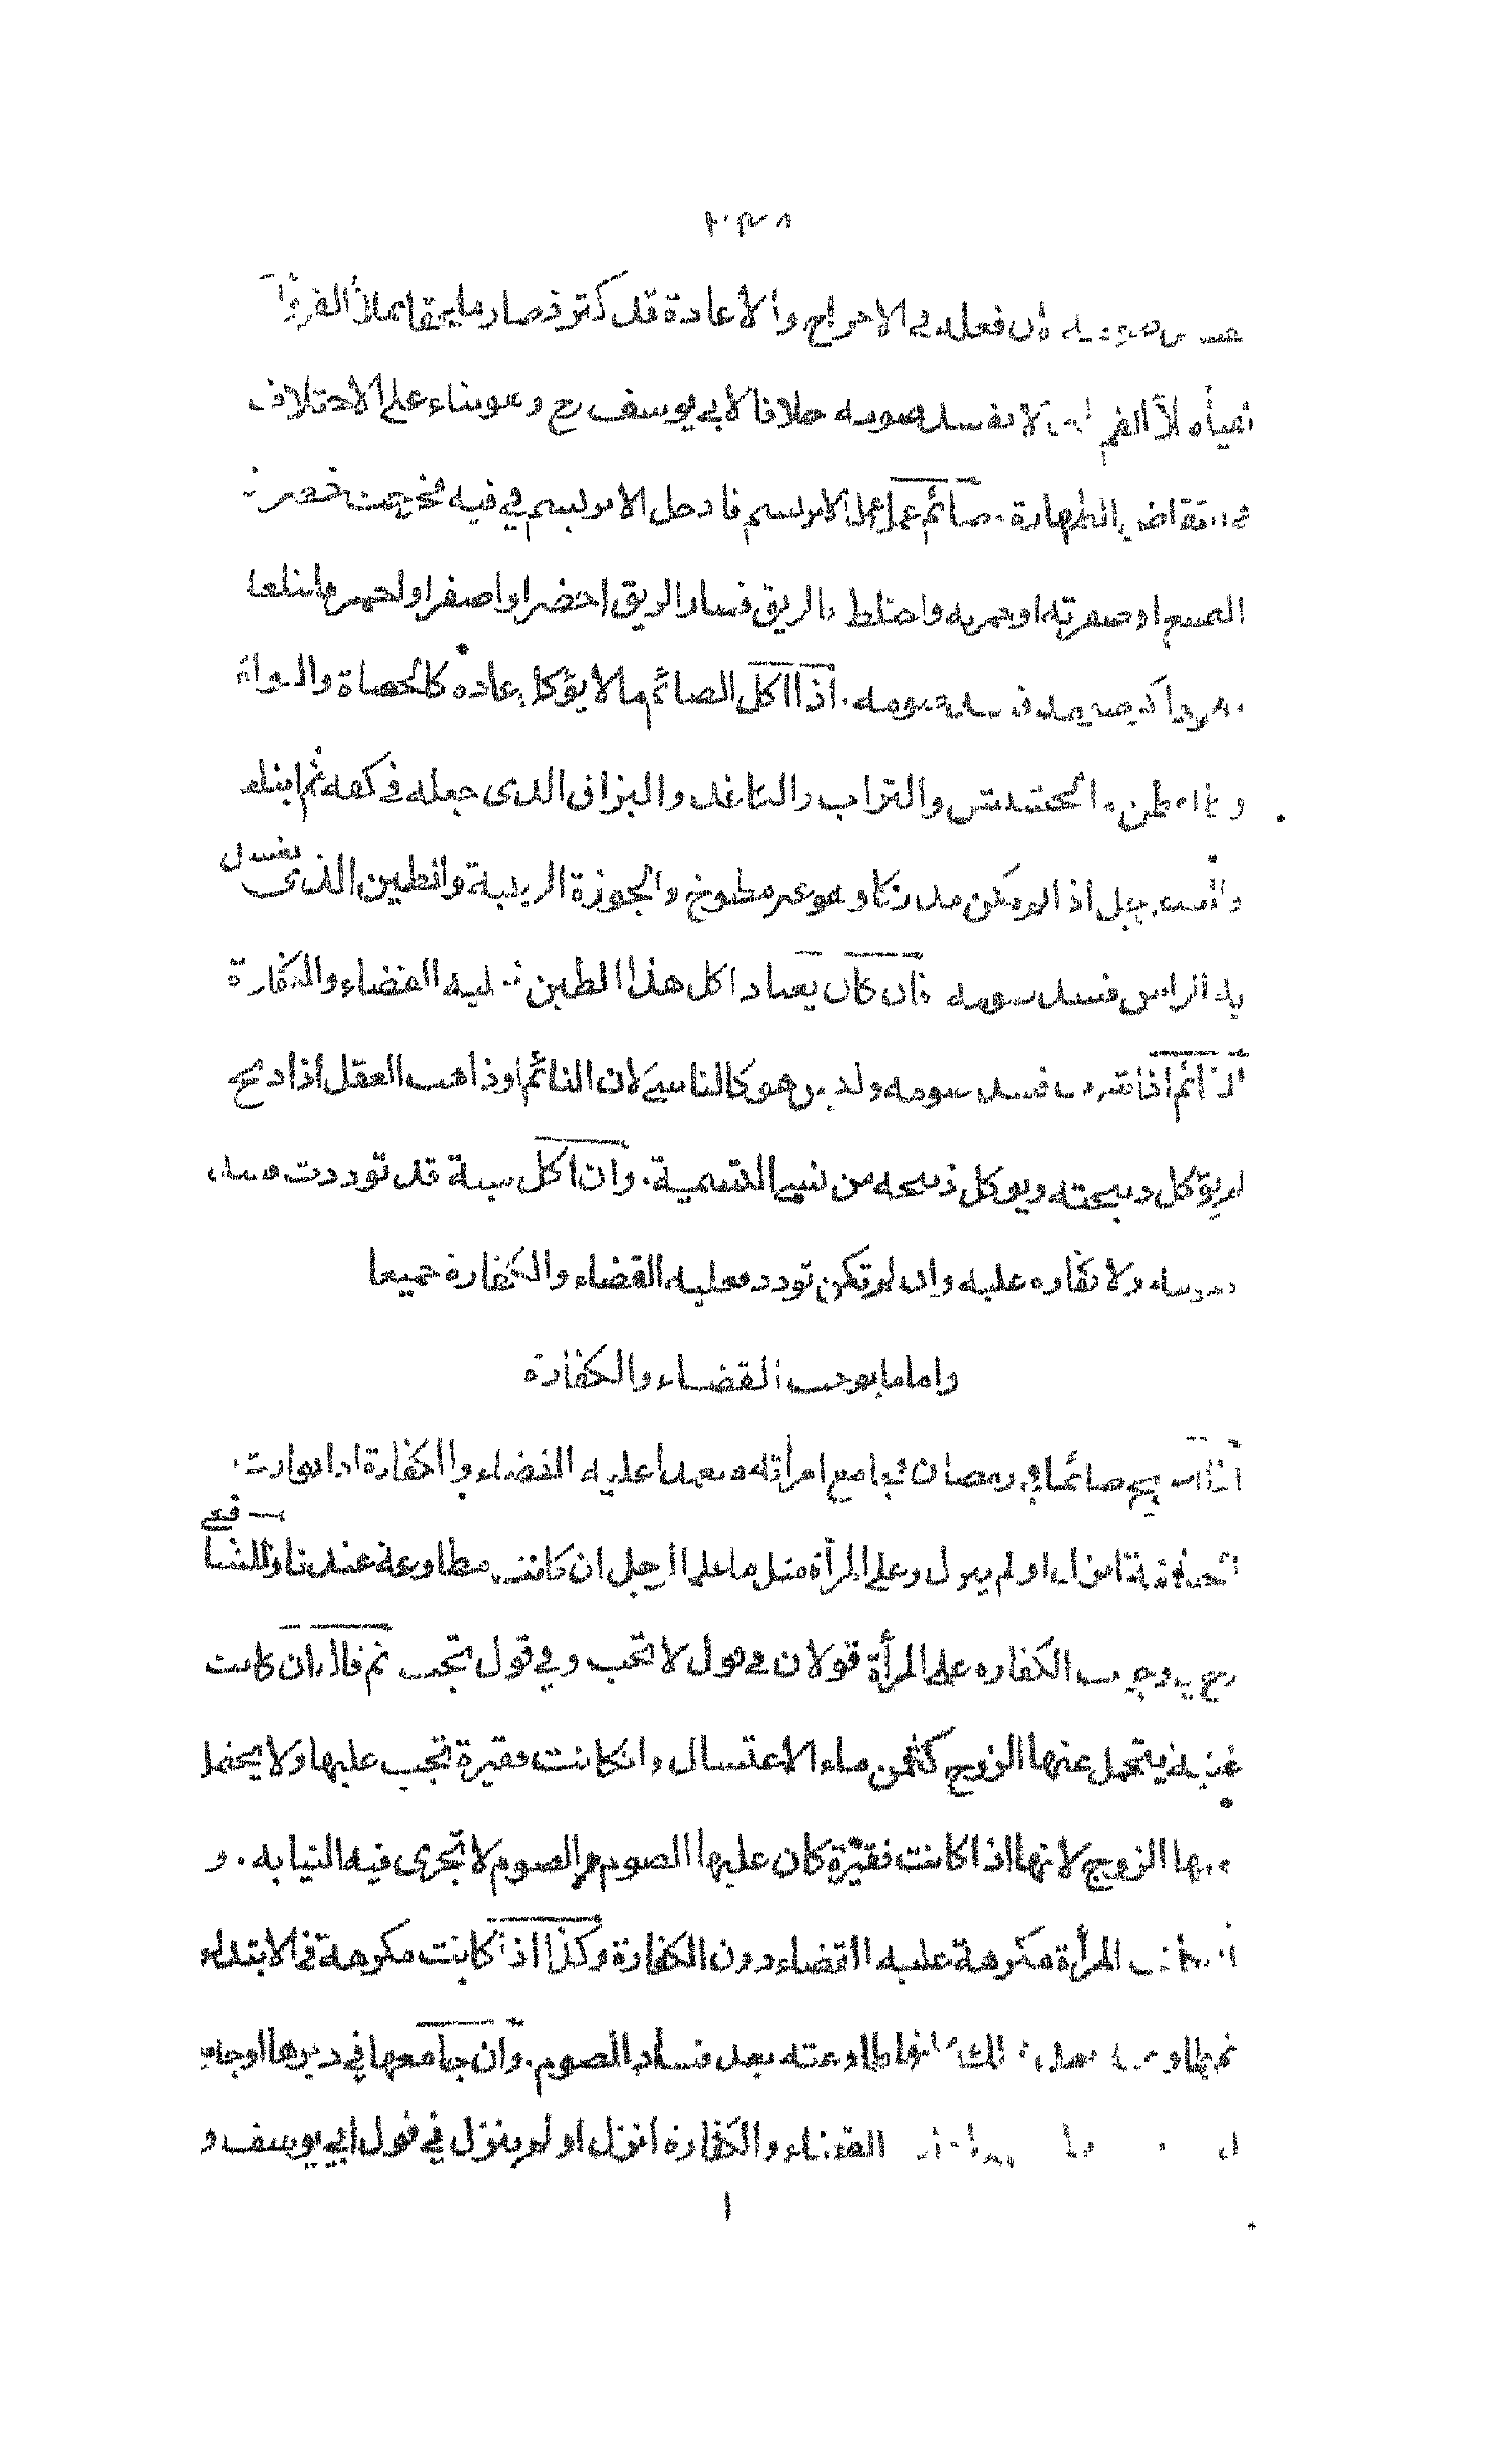 فان فعله في الاخراج والاعادة قد كثر فصار ملحقا بملأ الفم وان
تقيأ ملأ الفم لا يفسد صومه خلافا لابي يوسف رح وهو بناء على الاختلاف
في انتقاض الطهارة . صائم عمل عمل الابريسم فادخل الابريسم في فيه فخرجت خضرة
الصبغ او صفرته او حمرته واختلط بالريق فصار الريق اخضر او اصفر او احمر فابتلع
صومه . اذا اكل الصائم ما لا يؤكل عادة كالحصاة والنواة
والتراب والكاغد والبزاق الذي جعله في كفه ثم ابتلعه
والسفرجل اذا لم يكن مدركا وهو غير مطبوخ والجوزة الرطبة والطين الذي يغسل
به الراس فسد صومه فان كان يعتاد اكل هذا الطين فعليه القضاء والكفارة
النائم اذا شرب فسد صومه وليس هو كالناسي لان النائم او ذاهب العقل اذا ذبح
لم يؤكل ذبيحته ويؤكل ذبيحة من نسي التسمية . وان اكل ميتة قد تودت فسد
صومه ولا كفارة عليه وان لم تكن تودد فعليه القضاء والكفارة جميعا
واما ما يوجب القضاء والكفارة
اذا اصبح صائما في رمضان فجامع امرأته متعمدا عليه القضاء والكفارة اذا توارت
الحشفة انزل او لم ينزل وعلى المرأة مثل ما على الرجل ان كانت مطاوعة عندنا وللشافعي
رح في وجوب الكفارة على المرأة قولان في قول لا تجب وفي قول تجب ثم قال ان كانت
غنية يتحمل عنها الزوج كثمن ماء الاغتسال وان كانت فقيرة تجب عليها ولا يتحمل
عنها الزوج لانها اذا كانت فقيرة كان عليها الصوم والصوم لا تجرى فيه النيابة . و
ان كانت المرأة مكرهة عليه القضاء دون الكفارة وكذا اذا كانت مكرهة في الابتداء
ثم طاوعت بعد ذلك لانها طاوعته بعد فساد الصوم . وان جامعها في دبرها او جامع
القضاء والكفارة انزل او لم ينزل في قول ابي يوسف و